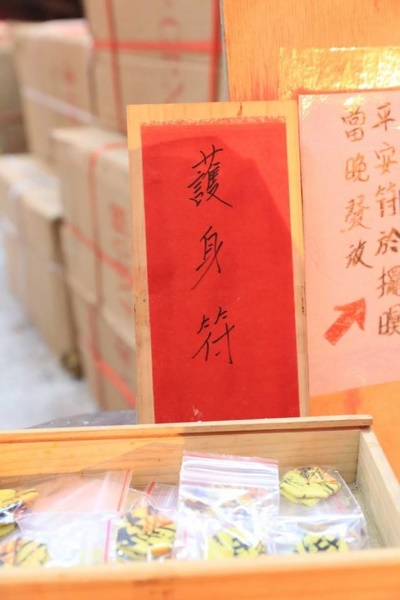 護身符
平安符於擺暝
當晚發放